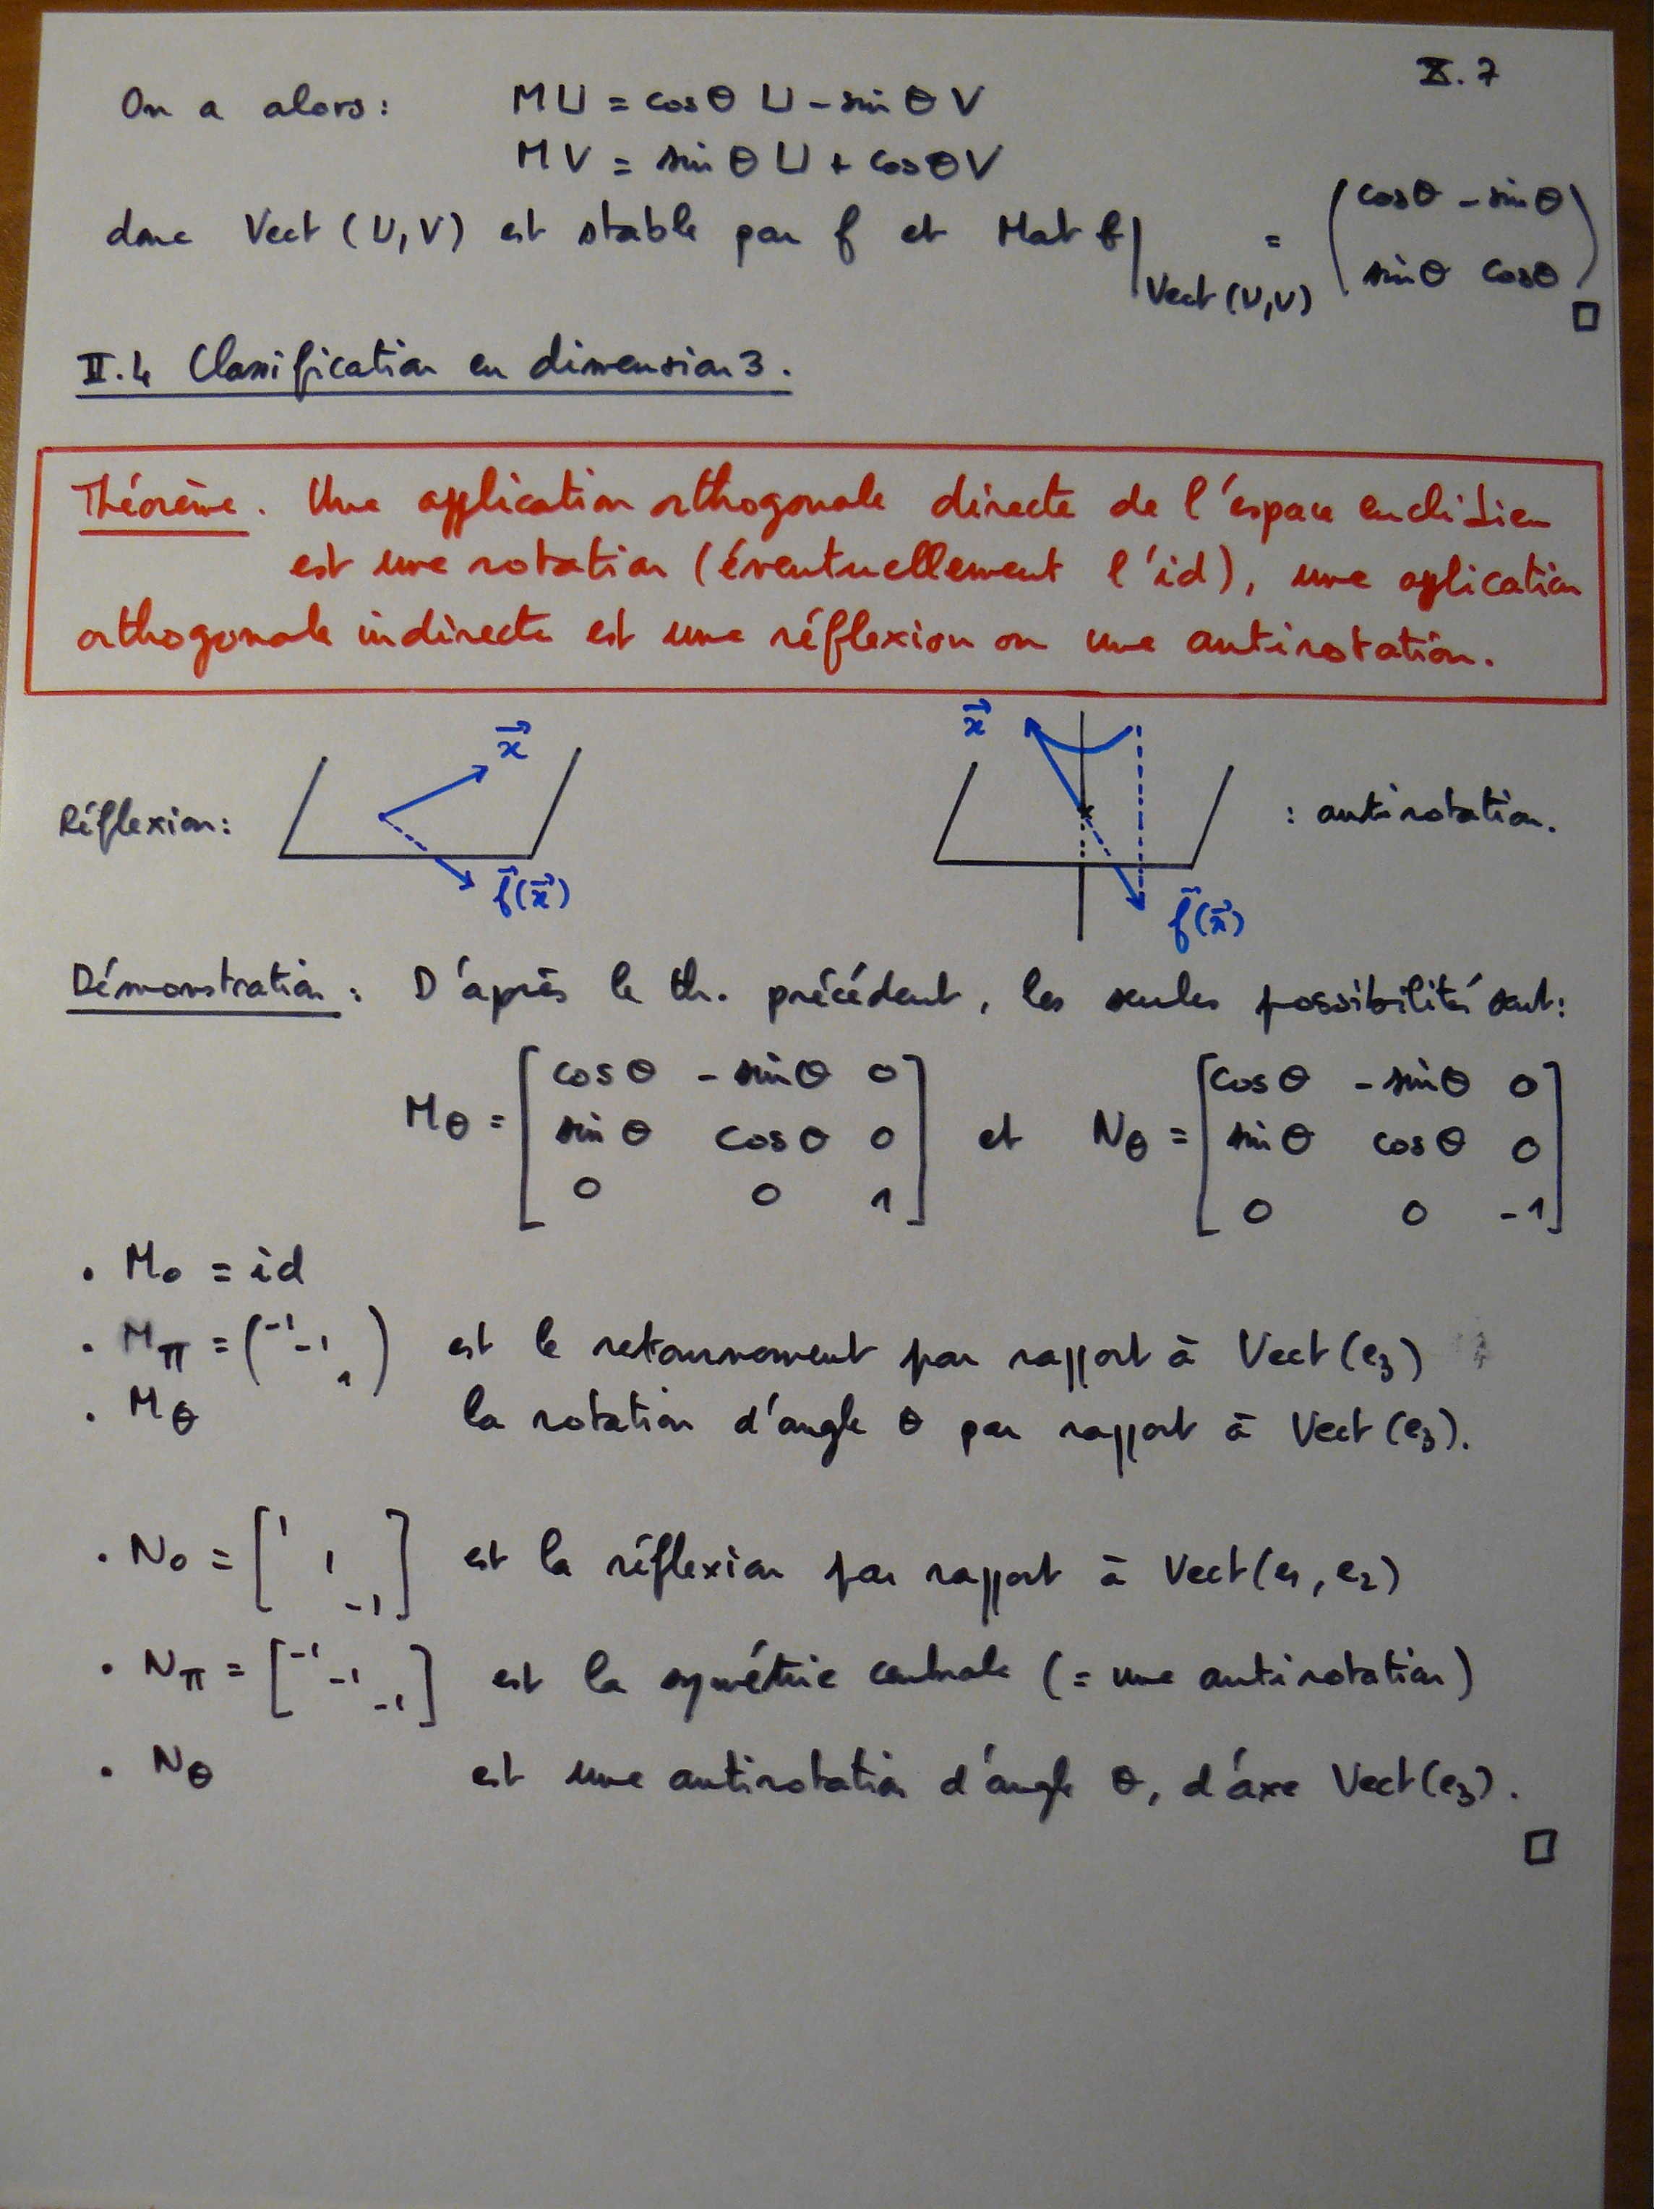 X.7
On a alors : MU = cosθ U - sinθ V
MV = sinθ U + cosθ V
donc Vect (U,V) est stable par f et Mat f|Vect(U,V) = (cosθ -sinθ
sinθ cosθ) □
II.4 Classification en dimension 3.
Théorème. Une application orthogonale directe de l'espace euclidien
est une rotation (éventuellement l'id), une aplication
orthogonale indirecte est une réflexion ou une antirotation.
Réflexion: x⃗ f⃗(x⃗)
x⃗ f⃗(x⃗) : antirotation.
Démonstration : D'après le th. précédent, les seules possibilité sont:
Mθ = [cosθ -sinθ 0
sinθ cosθ 0
0 0 1] et Nθ = [cosθ -sinθ 0
sinθ cosθ 0
0 0 -1]
. M0 = id
. Mπ = (-1 -1 1) est le retournement par rapport à Vect(e3)
. Mθ la rotation d'angle θ par rapport à Vect(e3).
. N0 = [1 1 -1] est la réflexion par rapport à Vect(e1, e2)
. Nπ = [-1 -1 -1] est la symétrie centrale (= une antirotation)
. Nθ est une antirotation d'angle θ, d'axe Vect(e3).
□